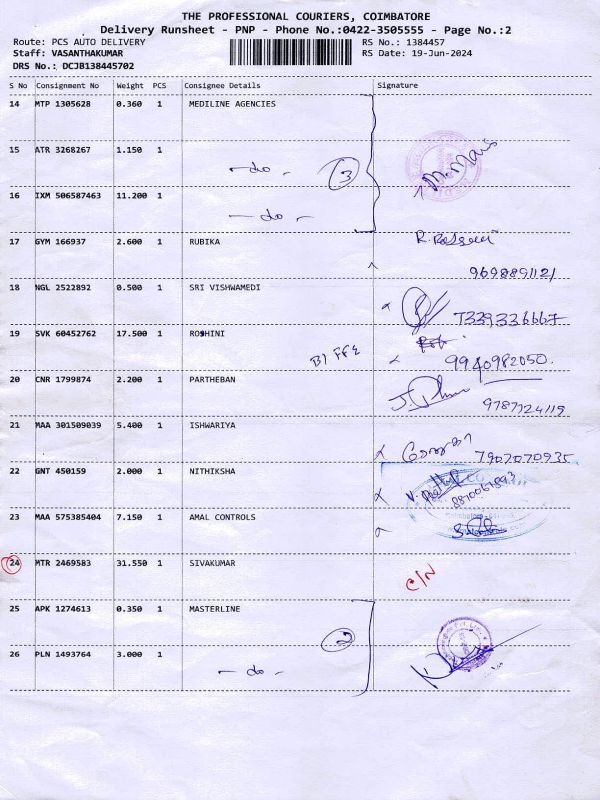 THE PROFESSIONAL COURIERS, COIMBATORE
Delivery Runsheet - PNP - Phone No.:0422-3505555 - Page No.:2
Route: PCS AUTO DELIVERY RS No.: 1384457
Staff: VASANTHAKUMAR RS Date: 19-Jun-2024
DRS No.: DCJB138445702
S No Consignment No Weight PCS Consignee Details Signature
14 MTP 1305628 0.360 1 MEDILINE AGENCIES
15 ATR 3268267 1.150 1
- do - 3
16 IXM 506587463 11.200 1
- do -
17 GYM 166937 2.600 1 RUBIKA
9698891121
18 NGL 2522892 0.500 1 SRI VISHWAMEDI
7339336667
19 SVK 60452762 17.500 1 ROSHINI
9940982050.
20 CNR 1799874 2.200 1 PARTHEBAN
9787724119
21 MAA 301509039 5.400 1 ISHWARIYA
7907070935
22 GNT 450159 2.000 1 NITHIKSHA
23 MAA 575385404 7.150 1 AMAL CONTROLS
24 MTR 2469583 31.550 1 SIVAKUMAR C/N
25 APK 1274613 0.350 1 MASTERLINE
2
26 PLN 1493764 3.000 1
- do -